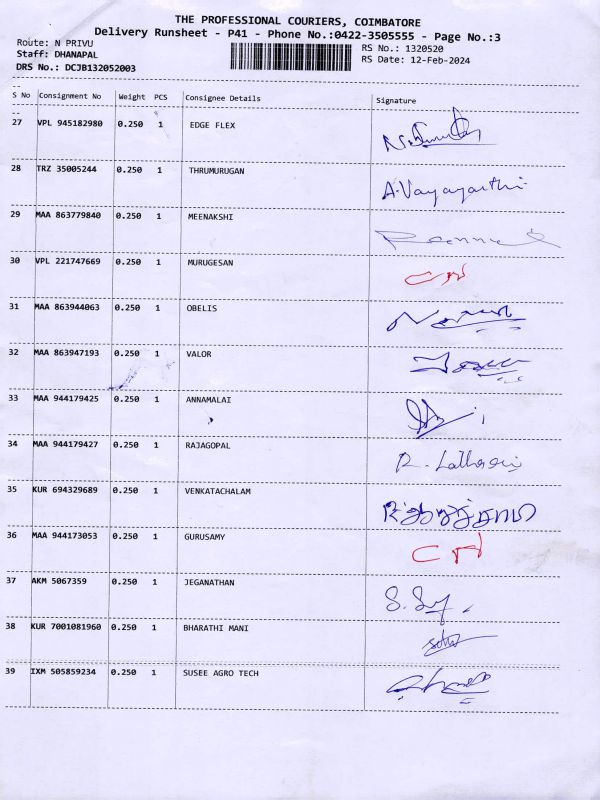 THE PROFESSIONAL COURIERS, COIMBATORE
Delivery Runsheet - P41 - Phone No.:0422-3505555 - Page No.:3
Route: N PRIVU
RS No.: 1320520
Staff: DHANAPAL
RS Date: 12-Feb-2024
DRS No.: DCJB132052003
S No Consignment No Weight PCS Consignee Details Signature
27 VPL 945182980 0.250 1 EDGE FLEX
28 TRZ 35005244 0.250 1 THRUMURUGAN
29 MAA 863779840 0.250 1 MEENAKSHI
30 VPL 221747669 0.250 1 MURUGESAN
31 MAA 863944063 0.250 1 OBELIS
32 MAA 863947193 0.250 1 VALOR
33 MAA 944179425 0.250 1 ANNAMALAI
34 MAA 944179427 0.250 1 RAJAGOPAL
35 KUR 694329689 0.250 1 VENKATACHALAM
36 MAA 944173053 0.250 1 GURUSAMY
37 AKM 5067359 0.250 1 JEGANATHAN
38 KUR 7001081960 0.250 1 BHARATHI MANI
39 IXM 505859234 0.250 1 SUSEE AGRO TECH